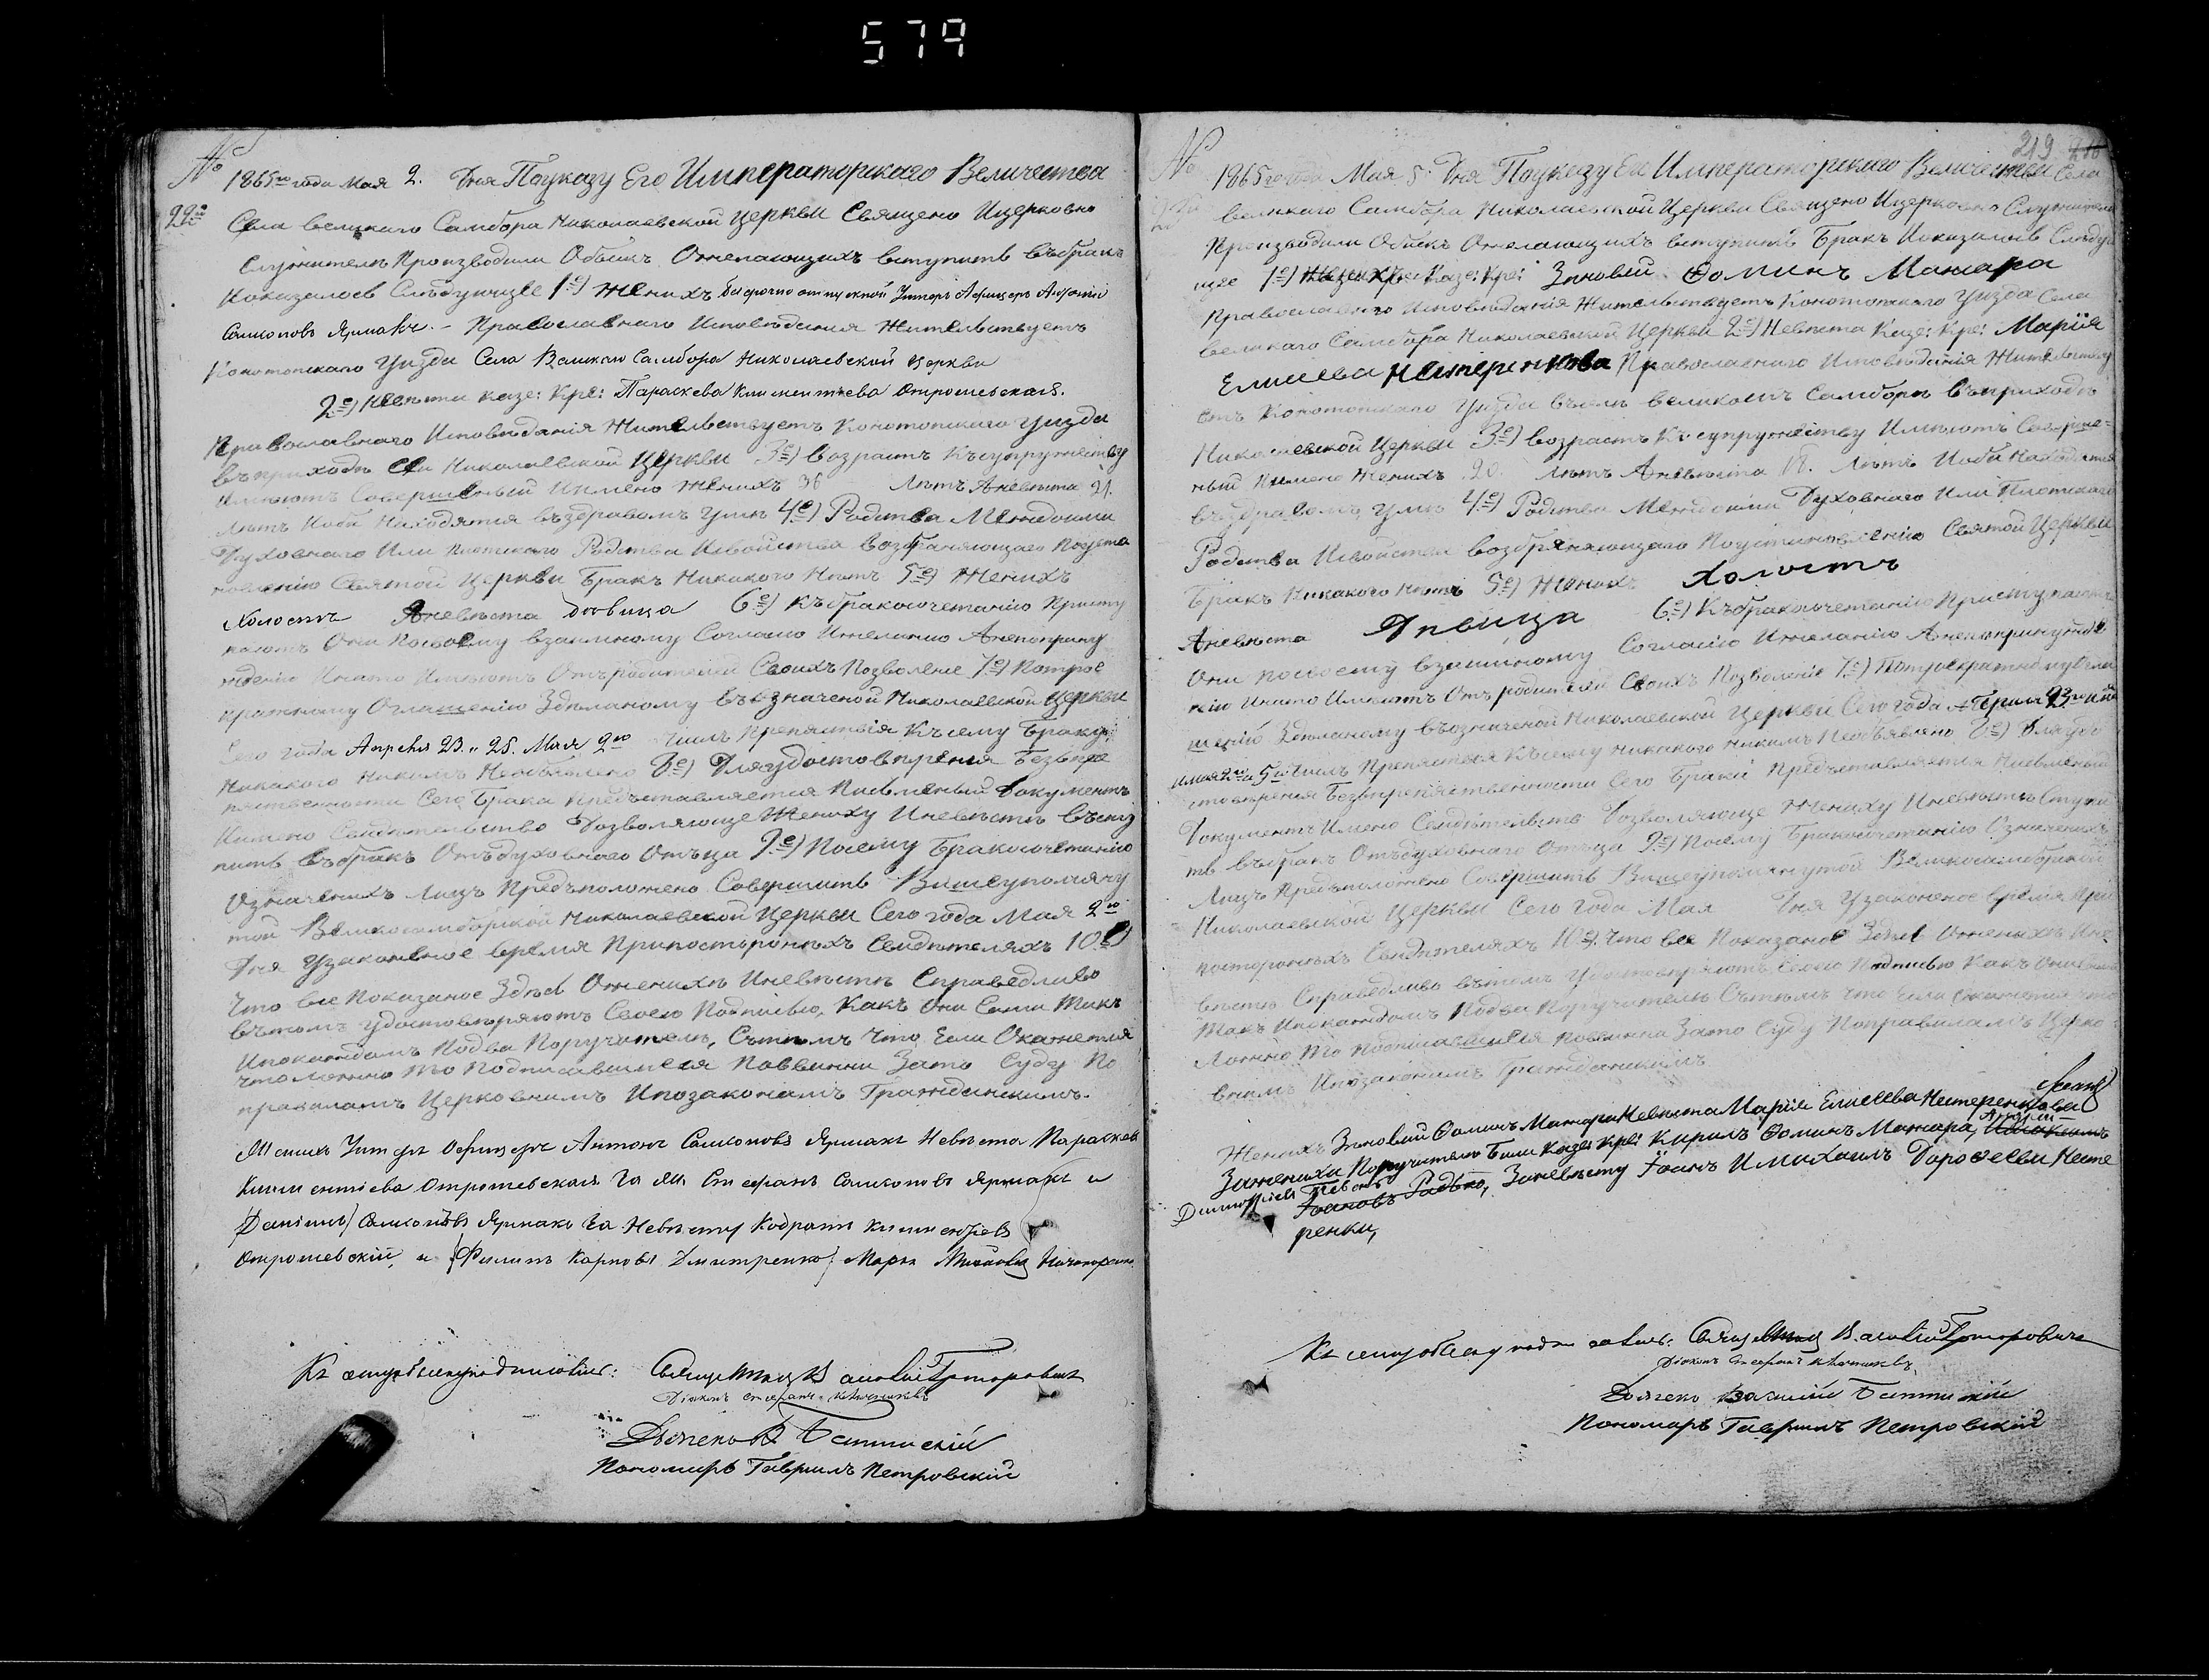 579
№ 1865го года Мая 2. Дня Поуказу Его Императорскаго Величества
22й Села великаго Самбора Николаевской церкви Священо Ицерковно
служители Производили Обыскъ Ожелающихъ вступить въбракъ
Показалось Слѣдующее 1е) Женихъ безсрочно отпускной Унтеръ Афицеръ Антоній
Самсоновъ Ярмакъ. - Православнаго Исповѣданія Жительствуетъ
Конотопскаго Уизда Села Великаго Самбора Николаевской церкви
2е) Невѣста казе: Кре: Параскева Климентьева Отрошевская.
Православнаго Исповѣданія Жительствуетъ Конотопскаго Уизда
въприходѣ Николаевской Церкви 3е) возрастъ Късупружеству
Имѣютъ Совершеный Имено Женихъ 36 Лѣтъ Аневѣста 21.
Лѣтъ Иоба Находятся въздравомъ Умѣ 4е) Родства Междоими
Духовнаго Или Плотскаго Родства Исвойства возбраняющаго Поуста
новленію Святой Церкви Бракъ Никакого Нѣтъ 5е) Женихъ
Холостъ Аневѣста Дѣвица 6е) Къбракосочетанію Присту
паютъ Они Посвоему взаимному Согласію Ижеланію Анепоприну
жденію Инато Имѣютъ Отъродителей Своихъ Позволеніе 7е) Потрое
кратному Оглашенію Здѣланому Въозначеной Николаевской Церкви
Сего года Апреля 23. и 25. Мая 2го Числъ Препятствія Къему Браку
Никакого Никимъ Необъявлено 8е) Дляудостовѣренія Безпре
пятственности Сего Брака Представляется Писменый Документъ
Имено Свидѣтельство Дозволяюще Жениху Иневѣстѣ Въсту
пить въбракъ Отъдуховнаго Отъца 9е) Посему Бракосочетанію
Означеныхъ Лицъ Предъположено Совершить Вишеупомяну
той Великосамборской Николаевской Церкви Сего года Мая 2го
Дня Узаконеное время Припосторонныхъ Свидѣтеляхъ 10е)
Что все Показаное Здѣсь Оженихѣ Иневѣстѣ Справедливо
вътомъ удостовѣряютъ Своею Подписью, Какъ Они Сами Такъ
Ипокаждомъ Подва Поручителя, Сътѣмъ Что Если Окажется
чтоложно То Подписавшиеся Повинни Зато Суду По
правиламъ Церковнимъ Ипозаконамъ Гражданскимъ.
Женихъ Унтеръ Офицеръ Антонъ Самсоновъ Ярмакъ Невѣста Параскева
Климентіева Отрошевская За Стефанъ Самсоновъ Ярмакъ и
Даніилъ Самсоновъ Ярмакъ За Невѣсту Кодратъ Климентіевъ
Отрошевскій, и Филипъ Карповъ Дмитренко Марка
Къ сему обыску подписались: Священникъ Василій Григоровичъ
Діяконъ Стефанъ
Дьячекъ В.
Пономарь Гавриилъ Петровскій
219
№ 1865го года Мая 5. Дня Поуказу Его Императорскаго Величества Села
великаго Самбора Николаевской Церкви Священо Ицерковно Служители
Производили Обискъ Ожелающихъ вступить Бракъ Показалось Слѣду
щее 1е) Женихъ Казе: Кре: Зиновій Ѳоминъ Мажара
Православнаго Исповѣданія Жительствуетъ Конотопскаго Уизда Села
великаго Самбора Николаевской Церкви 2е) Невѣста Казе: Кре: Марія
Елисеева Нестеренкова Православнаго Исповѣданія Жительству
етъ Конотопскаго Уизда Въселѣ великомъ Самборѣ въприходѣ
Николаевской Церкви 3е) возрастъ Късупружеству Имѣютъ Соверше-
ный Имено Женихъ 20. Лѣтъ Аневѣста 18. Лѣтъ Иоба Находятся
въздравомъ умѣ 4е) Родства Междоими Духовнаго Или Плотскаго
Родства Исвойства возбраняющаго Поустановленію Святой Церкви
Бракъ Никакого Нѣтъ 5е) Женихъ Холостъ
Аневѣста Дѣвица 6е) Къбракосочетанію Приступаютъ
Они Посвоему взаимному Согласію Ижеланію Анепопринужде
нію Инато Имѣютъ Отъродителей Своихъ Позволеніе 7е) Потроекратному Огла
шенію Здѣланому въозначеной Николаевской Церкви Сего года Априля 23го
и мая 2го и 5го Числъ Препятствія Късему никакого Никимъ Необъявлено 8е) Дляудо
стовѣренія Безпрепятственности Сего Брака Представляется Писменый
Документъ Имено Свидѣтельство Дозволяюще Жениху Иневѣстѣ Вступи
ть въбракъ Отъдуховнаго Отъца 9е) Посему Бракосочетанію Означеныхъ
Лицъ Предъположено Совершить Вишеупомянутой Великосамборской
Николаевской Церкви Сего Года Мая Дня Узаконеное время При
посторонныхъ Свидѣтеляхъ 10е) Что все Показаное Здѣсь Оженихѣ Ине
вѣстѣ Справедливо вътомъ Удостовѣряютъ Своею Подписью Какъ Они Сами
Такъ Ипокаждомъ Подва Поручителя Сътѣмъ Что Если Окажется что
Ложно То Подписавшиеся Повинна Зато Суду Поправиламъ Церко
внимъ Ипозаконамъ Гражданскимъ
Женихъ Зиновій Ѳоминъ Мажара Невѣста Марія Елисеева Нестеренкова
Зажениха Поручители Били Казе: Кре: Кирилъ Ѳоминъ Мажара,
Іоановъ Радько, Заневѣсту Іоанъ Имихаилъ Дороѳеевы Несте
ренки,
Къ сему обыску подписались: Священникъ Василій Григоровичъ
Діяконъ Стефанъ
Дьячекъ Василій
Пономарь Гавриилъ Петровскій